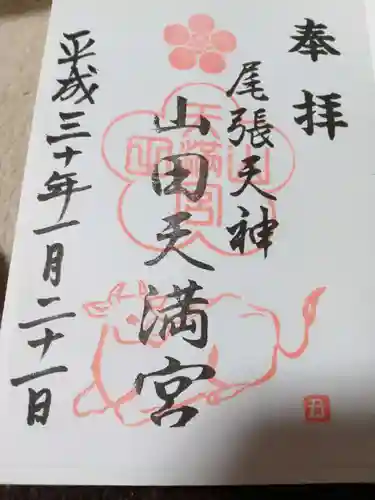 奉拝
尾張天神
山田天満宮
平成三十年一月二十一日
山田天満宮